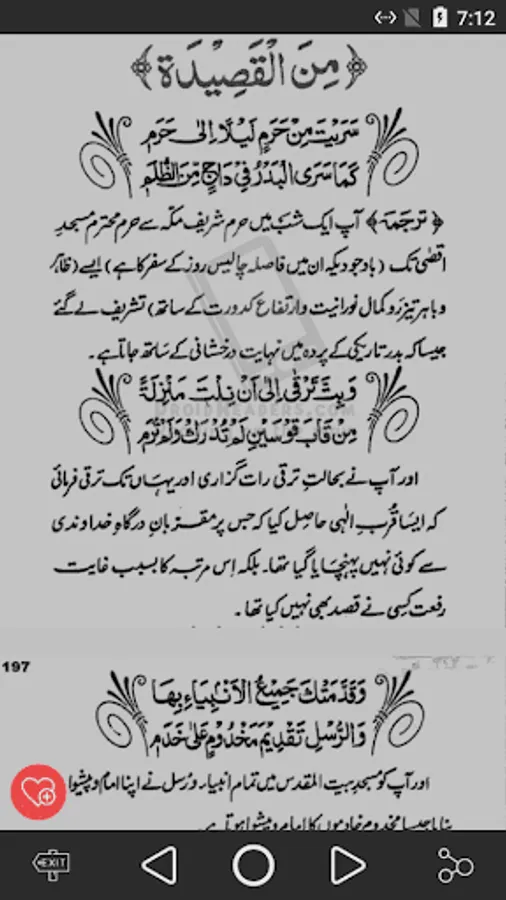 7:12
مِنَ الْقَصِيْدَة
سَرَيْتَ مِنْ حَرَمٍ لَيْلًا اِلٰى حَرَمٍ
كَمَا سَرَى الْبَدْرُ فِيْ دَاجٍ مِّنَ الظُّلَمِ
﴿ترجمہ﴾ آپ ایک شب میں حرم شریف مکہ سے حرم محترم مسجد
اقصٰی تک (باوجودیکہ ان میں فاصلہ چالیس روز کے سفر کا ہے) ایسے (ظاہر
و باہر تیز رَو کمال نورانیت و ارتفاع کدورت کے ساتھ) تشریف لے گئے
جیسا کہ بدر تاریکی کے پردہ میں نہایت درخشانی کے ساتھ جاتا ہے۔
وَبِتَّ تَرْقٰى اِلٰى اَنْ نِلْتَ مَنْزِلَةً
DROIDREADERS.COM
مِنْ قَابَ قَوْسَيْنِ لَمْ تُدْرَكْ وَلَمْ تُرَمِ
اور آپ نے بحالتِ ترقی رات گزاری اور یہاں تک ترقی فرمائی
کہ ایسا قُربِ الٰہی حاصل کیا کہ جس پر مقربانِ درگاہِ خداوندی
سے کوئی نہیں پہنچایا گیا تھا۔ بلکہ اِس مرتبہ کا بسبب غایت
رفعت کِسی نے قصد بھی نہیں کیا تھا۔
197
وَقَدَّمَتْكَ جَمِيْعُ الْاَنْبِيَاءِ بِهَا
وَالرُّسْلِ تَقْدِيْمَ مَخْدُوْمٍ عَلٰى خَدَمِ
اور آپ کو مسجد بیت المقدس میں تمام انبیاء و رُسل نے اپنا امام و پیشوا
بنایا جیسا مخدوم خادموں کا امام و پیشوا ہوتا ہے
EXIT